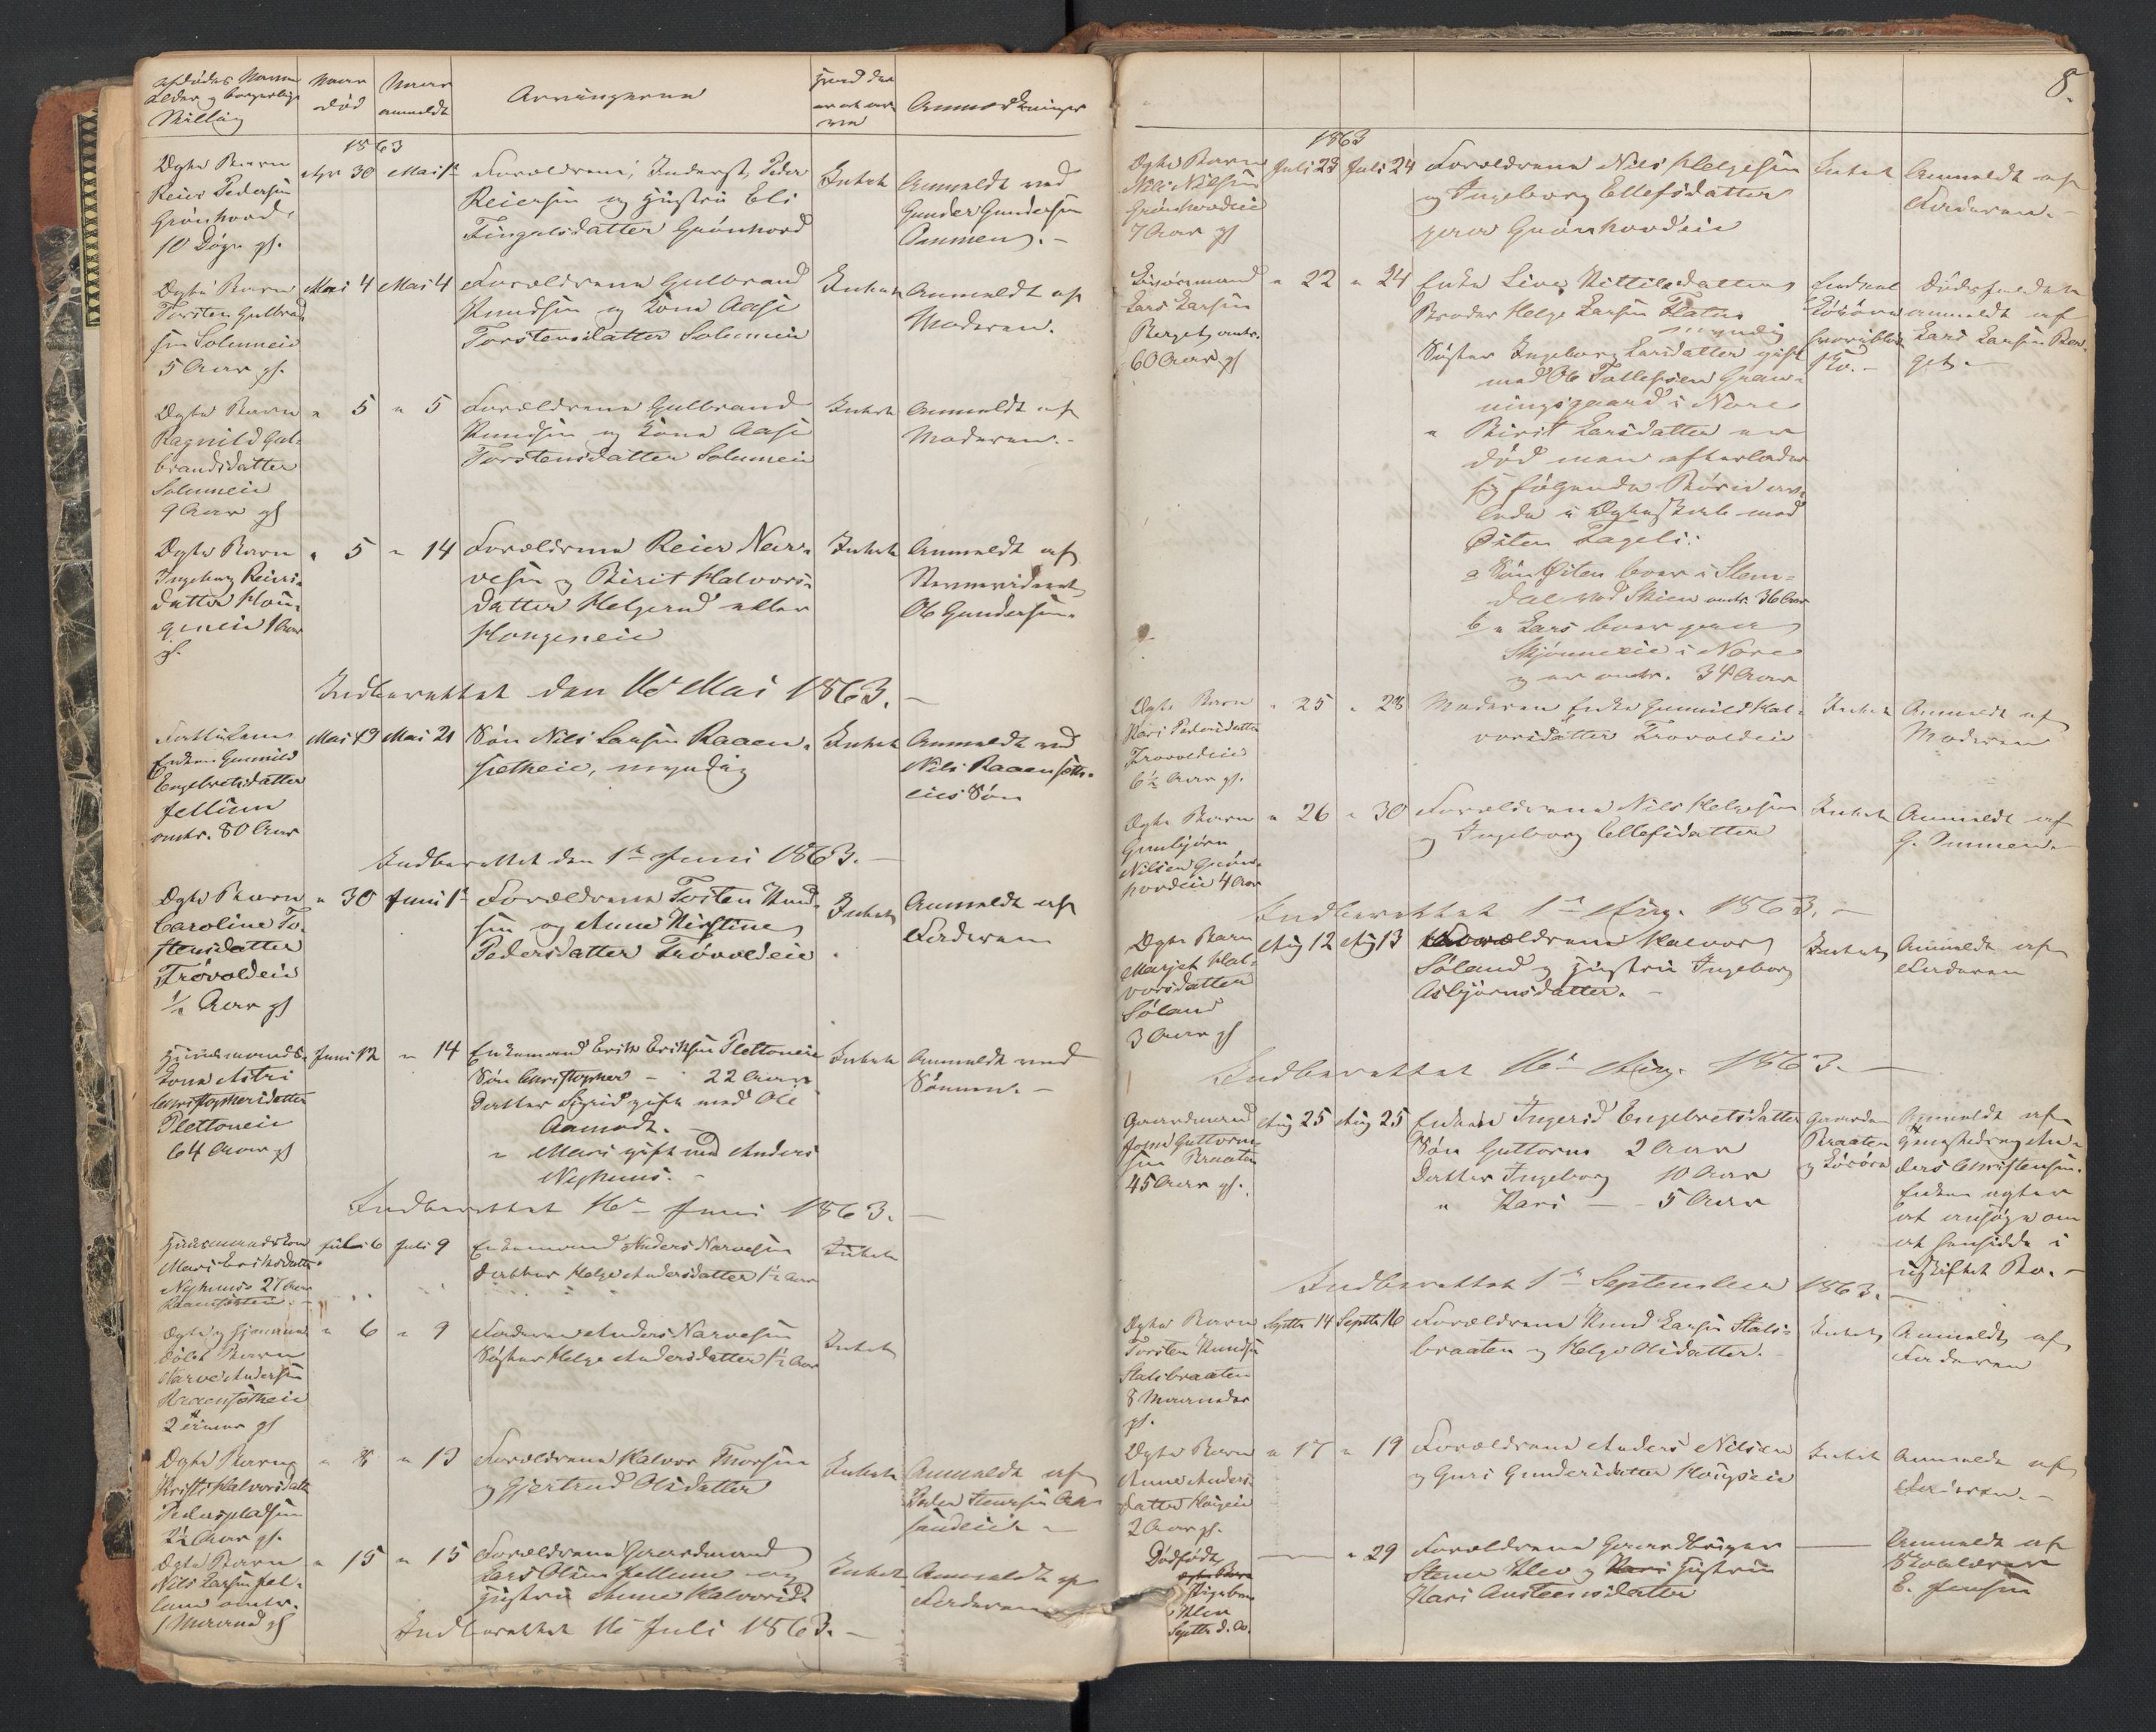 Afdødes Navn
Alder og borgerlige
Stilling
Naar
død
Naar
anmeldt
Arvingerne
Hvad der
er at arve
Anmærkninger
1863
Ægte Barn
Reier Pedersen
Grönhovd
10 Døgn gl.
Apr 30
Mai 1ste
Forældrene, Inderst, Peder
Reiersen og Hustru Eli
Fingalsdatter Grönhovd
Intet
Anmeldt ved
Gunder Gundersen
Ommen.-
Ægte Barn
Torsten Gulbrand-
sen Solumeie
5 Aar gl.
Mai 4
Mai 4
Forældrene Gulbrand
Knudsen og Kone Aase
Torstensdatter Solumeie
Intet
Anmeldt af
Moderen.
Ægte Barn
Ragnild Gul-
brandsdatter
Solumeie
9 Aar gl
" 5
" 5
Forældrene Gulbrand
Knudsen og Kone Aase
Torstensdatter Solumeie
Intet
Anmeldt af
Moderen.-
Ægte Barn
Ingeborg Reiers-
datter
1 Aar
gl.
" 5
" 14
Forældrene Reier Nar-
vesen og Birit Halvors-
datter Helgerud eller
Intet
Anmeldt af
Ole Gundersen.
Indberettet den 16de Mai 1863.-
Enken Gunnild
Engebretsdatter
Jellum
omtr. 80 Aar
Mai 19
Mai 21
Søn Nils Larsen Raaen-
myndig
Intet
Anmeldt ved
Nils
Søn
Indberettet den 1ste Juni 1863.-
Ægte Barn
Caroline To-
stensdatter
Trövoldeie
1/2 Aar gl
" 30
Juni 1ste
Forældrene Tosten Knud-
sen og Anne Kirstine
Pedersdatter Trövoldeie
Intet
Anmeldt af
Faderen
Huusmands-
kone Astri
Christophersdatter
Plettoneie
64 Aar gl
Juni 12
" 14
Enkemand Erik Eriksen Plettoneie
Søn Christopher - 22 Aar
Datter Sigrid gift med Ole
Aamodt.
" Mari gift med Anders
Nyhuus.-
Intet
Anmeldt ved
Sønnen.-
Indberettet 16de Juni 1863.-
Huusmandskone
Mari Eriksdatter
Nyhuus 27 Aar
Juli 6
Juli 9
Enkemand Anders Narvesen
Datter Helge Andersdatter 1½ Aar
Intet
Ægte og hjemme
døbt Barn
Narve Andersen
2 Timer gl
" 6
" 9
Faderen Anders Narvesen
Søster Helge Andersdatter 1½ Aar
Intet
Ægte Barn
Kristi Halvorsdatter
Pederspladsen
2½ Aar gl.
" 8
" 13
Forældrene Halvor Thorsen
og Gjertrud Olsdatter
Intet
Anmeldt af
Ægte Barn
Nils Larsen Jel-
lum omtr.
1 Maaned gl
" 15
" 15
Forældrene Gaardmand
Lars Olsen Jellum og
Hustru Anne Halvorsd.
Intet
Anmeldt af
Faderen
Indberettet 16de Juli 1863.-
8.
1863
Ægte Barn
Nils Nilsen
Grönhovdeie
7 Aar gl
Juli 23
Juli 24
Forældrene Nils Helgesen
og Ingeborg Ellefsdatter
paa Grönhovdeie
Intet
Anmeldt af
Faderen.-
Lars Larsen
Berget, omtr.
60 Aar gl
" 22
" 24
Enke Live Kittilsdatter
Broder Helge Larsen
myndig
Søster Ingeborg Larsdatter gift
med Ole Tollefsen Grav-
ningsgaard i Nore
" Birit Larsdatter er
død men efterlader
sig følgende Børn av-
lede i Ægteskab med
Östen Fageli:
a Søn Östen boer i Slem-
dal ved Skien omtr. 36 Aar
b " Lars boer paa
Skjönneeie i Nore
og er omtr. 34 Aar
Løsøre
Bo.-
Dødsfaldet
anmeldt af
Lars Larsen Ber-
get.-
Ægte Barn
Kari Pedersdatter
Trovoldeie
6½ Aar gl.
" 25
" 28
Moderen Enke Gunnild Hal-
vorsdatter Trovoldeie
Intet
Anmeldt af
Moderen
Ægte Barn
Gunbjörn
Nilsen Grön-
hovdeie 4 Aar
" 26
" 30
Forældrene Nils Helgesen
og Ingeborg Ellefsdatter
Intet
Anmeldt af
G. Ommen.-
Indberettet 1ste Aug. 1863.-
Ægte Barn
Marjet Hal-
vorsdatter
Söland
3 Aar gl
Aug 12
Aug 13
Forældrene Halvor
Söland og Hustru Ingeborg
Asbjörnsdatter.-
Intet
Anmeldt af
Faderen
Indberettet 16de Aug. 1863.-
Gaardmand
Guttorm-
sen Braaten
45 Aar gl.
Aug 25
Aug 25
Enken Ingerid Engebretsdatter
Søn Guttorm 2 Aar
Datter Ingeborg 10 Aar
" Kari - 5 Aar
Gaarden
Braaten
og Løsøre
Anmeldt af
An-
ders Christensen.
Enken agter
at ansøge om
at hensidde i
uskiftet Bo.-
Indberettet 1ste September 1863.-
Ægte Barn
Torsten Knudsen
Stalsbraaten
8 Maaneder
gl.
Septbr 14
Septbr 16
Forældrene Knud Larsen Stals-
braaten og Helge Olsdatter.
Intet
Anmeldt af
Faderen
Ægte Barn
Anne Anders-
datter
2 Aar gl.
" 17
" 19
Forældrene Anders Nilsen
og Guri Gundersdatter
Intet
Anmeldt af
Faderen.-
Dødfødt
Pigebarn
Septbr d. A.
" 29
Forældrene Gaardbruger
Stener Klev og Kari Hustru
Kari Austeensdatter
Anmeldt af
E. Jensen